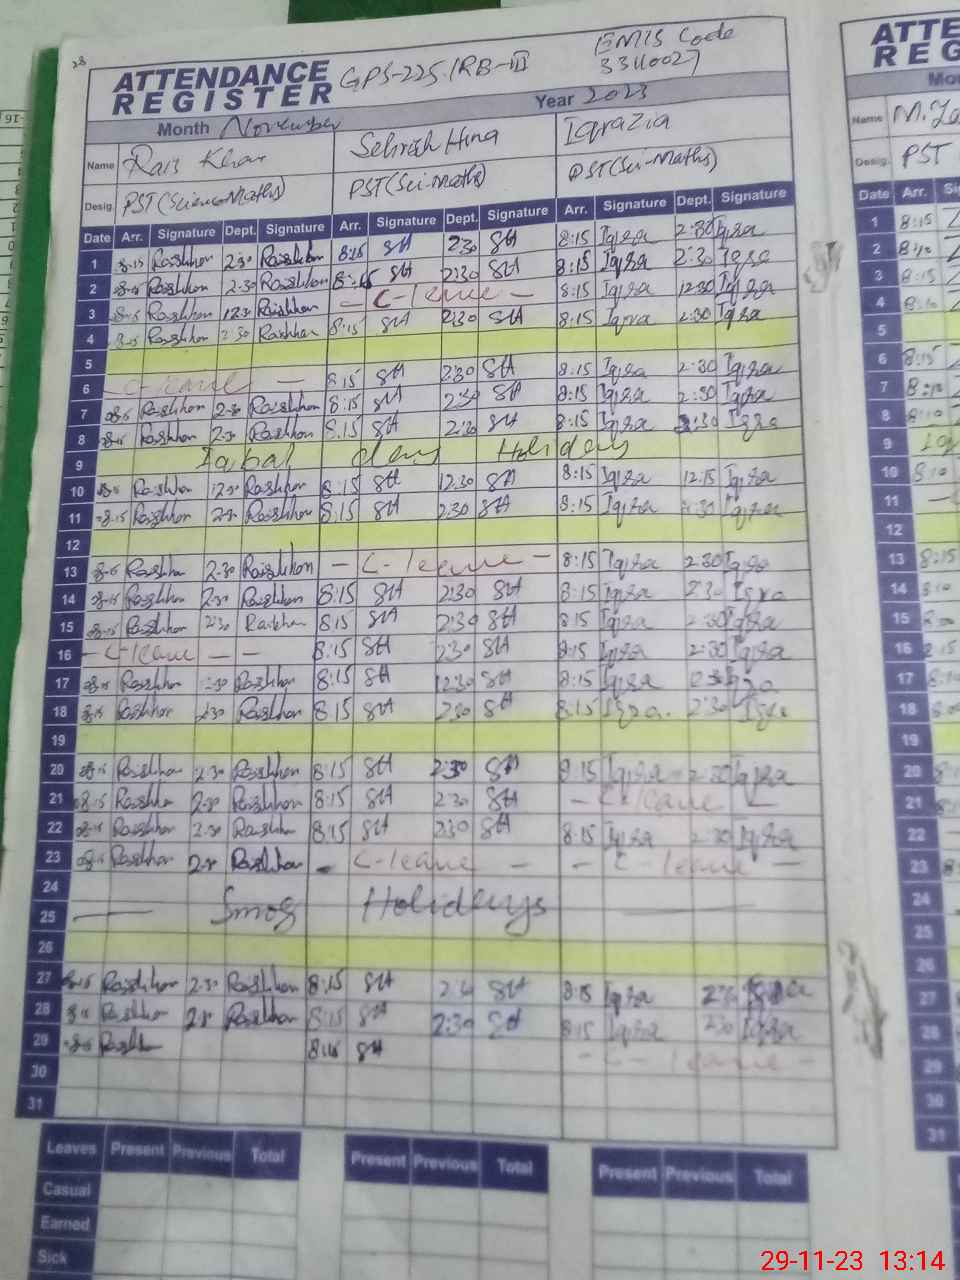 28
ATTENDANCE REGISTER GPS-225.1RB-III EMIS Code 33110027
Month November Year 2023
Name Rais Khan Sehrish Hina Iqrazia
Desig. PST(Science Maths) PST(Sci-Maths) PST(Sci-Maths)
Date Arr. Signature Dept. Signature Arr. Signature Dept. Signature Arr. Signature Dept. Signature
1 8:15 Raiskhan 2:30 Raiskhan 8:15 SH 2:30 SH 8:15 Iqra 2:30 Iqra
2 8:15 Raiskhan 2:30 Raiskhan 8:15 SH 2:30 SH 8:15 Iqra 2:30 Iqra
3 8:15 Raiskhan 12:30 Raiskhan - C-leave - 8:15 Iqra 12:30 Iqra
4 8:15 Raiskhan 2:30 Raiskhan 8:15 SH 2:30 SH 8:15 Iqra 2:30 Iqra
5
6 C-leave - 8:15 SH 2:30 SH 8:15 Iqra 2:30 Iqra
7 8:15 Raiskhan 2:30 Raiskhan 8:15 SH 2:30 SH 8:15 Iqra 2:30 Iqra
8 8:15 Raiskhan 2:30 Raiskhan 8:15 SH 2:30 SH 8:15 Iqra 2:30 Iqra
9 Iqbal day Holiday
10 8:15 Raiskhan 12:30 Raiskhan 8:15 SH 12:30 SH 8:15 Iqra 12:15 Iqra
11 8:15 Raiskhan 2:30 Raiskhan 8:15 SH 2:30 SH 8:15 Iqra 2:30 Iqra
12
13 8:15 Raiskhan 2:30 Raiskhan - C-leave - 8:15 Iqra 2:30 Iqra
14 8:15 Raiskhan 2:30 Raiskhan 8:15 SH 2:30 SH 8:15 Iqra 2:30 Iqra
15 8:15 Raiskhan 2:30 Raiskhan 8:15 SH 2:30 SH 8:15 Iqra 2:30 Iqra
16 - C-leave - - 8:15 SH 2:30 SH 8:15 Iqra 2:30 Iqra
17 8:15 Raiskhan 12:30 Raiskhan 8:15 SH 12:30 SH 8:15 Iqra 12:30 Iqra
18 8:15 Raiskhan 2:30 Raiskhan 8:15 SH 2:30 SH 8:15 Iqra. 2:30 Iqra
19
20 8:15 Raiskhan 2:30 Raiskhan 8:15 SH 2:30 SH 8:15 Iqra 2:30 Iqra
21 8:15 Raiskhan 2:30 Raiskhan 8:15 SH 2:30 SH - C-leave -
22 8:15 Raiskhan 2:30 Raiskhan 8:15 SH 2:30 SH 8:15 Iqra 2:30 Iqra
23 8:15 Raiskhan 2:30 Raiskhan - C-leave - - C-leave -
24
25 Smog Holidays
26
27 8:15 Raiskhan 2:30 Raiskhan 8:15 SH 2:30 SH 8:15 Iqra 2:30 Iqra
28 8:15 Raiskhan 2:30 Raiskhan 8:15 SH 2:30 SH 8:15 Iqra 2:30 Iqra
29 8:15 Raiskhan 8:15 SH - C-leave -
30
31
Leaves Present Previous Total Present Previous Total Present Previous Total
Casual
Earned
Sick
Name M.
Desig. PST
Date Arr.
1 8:15
2 8:10
3 8:15
4 8:10
5
6 8:15
7 8:10
8 8:10
9
10 8:10
11
12
13 8:15
14 8:10
15
16 8:15
17 8:10
18
19
20
21
22
23
24
25
26
27
28
29
30
31
29-11-23 13:14